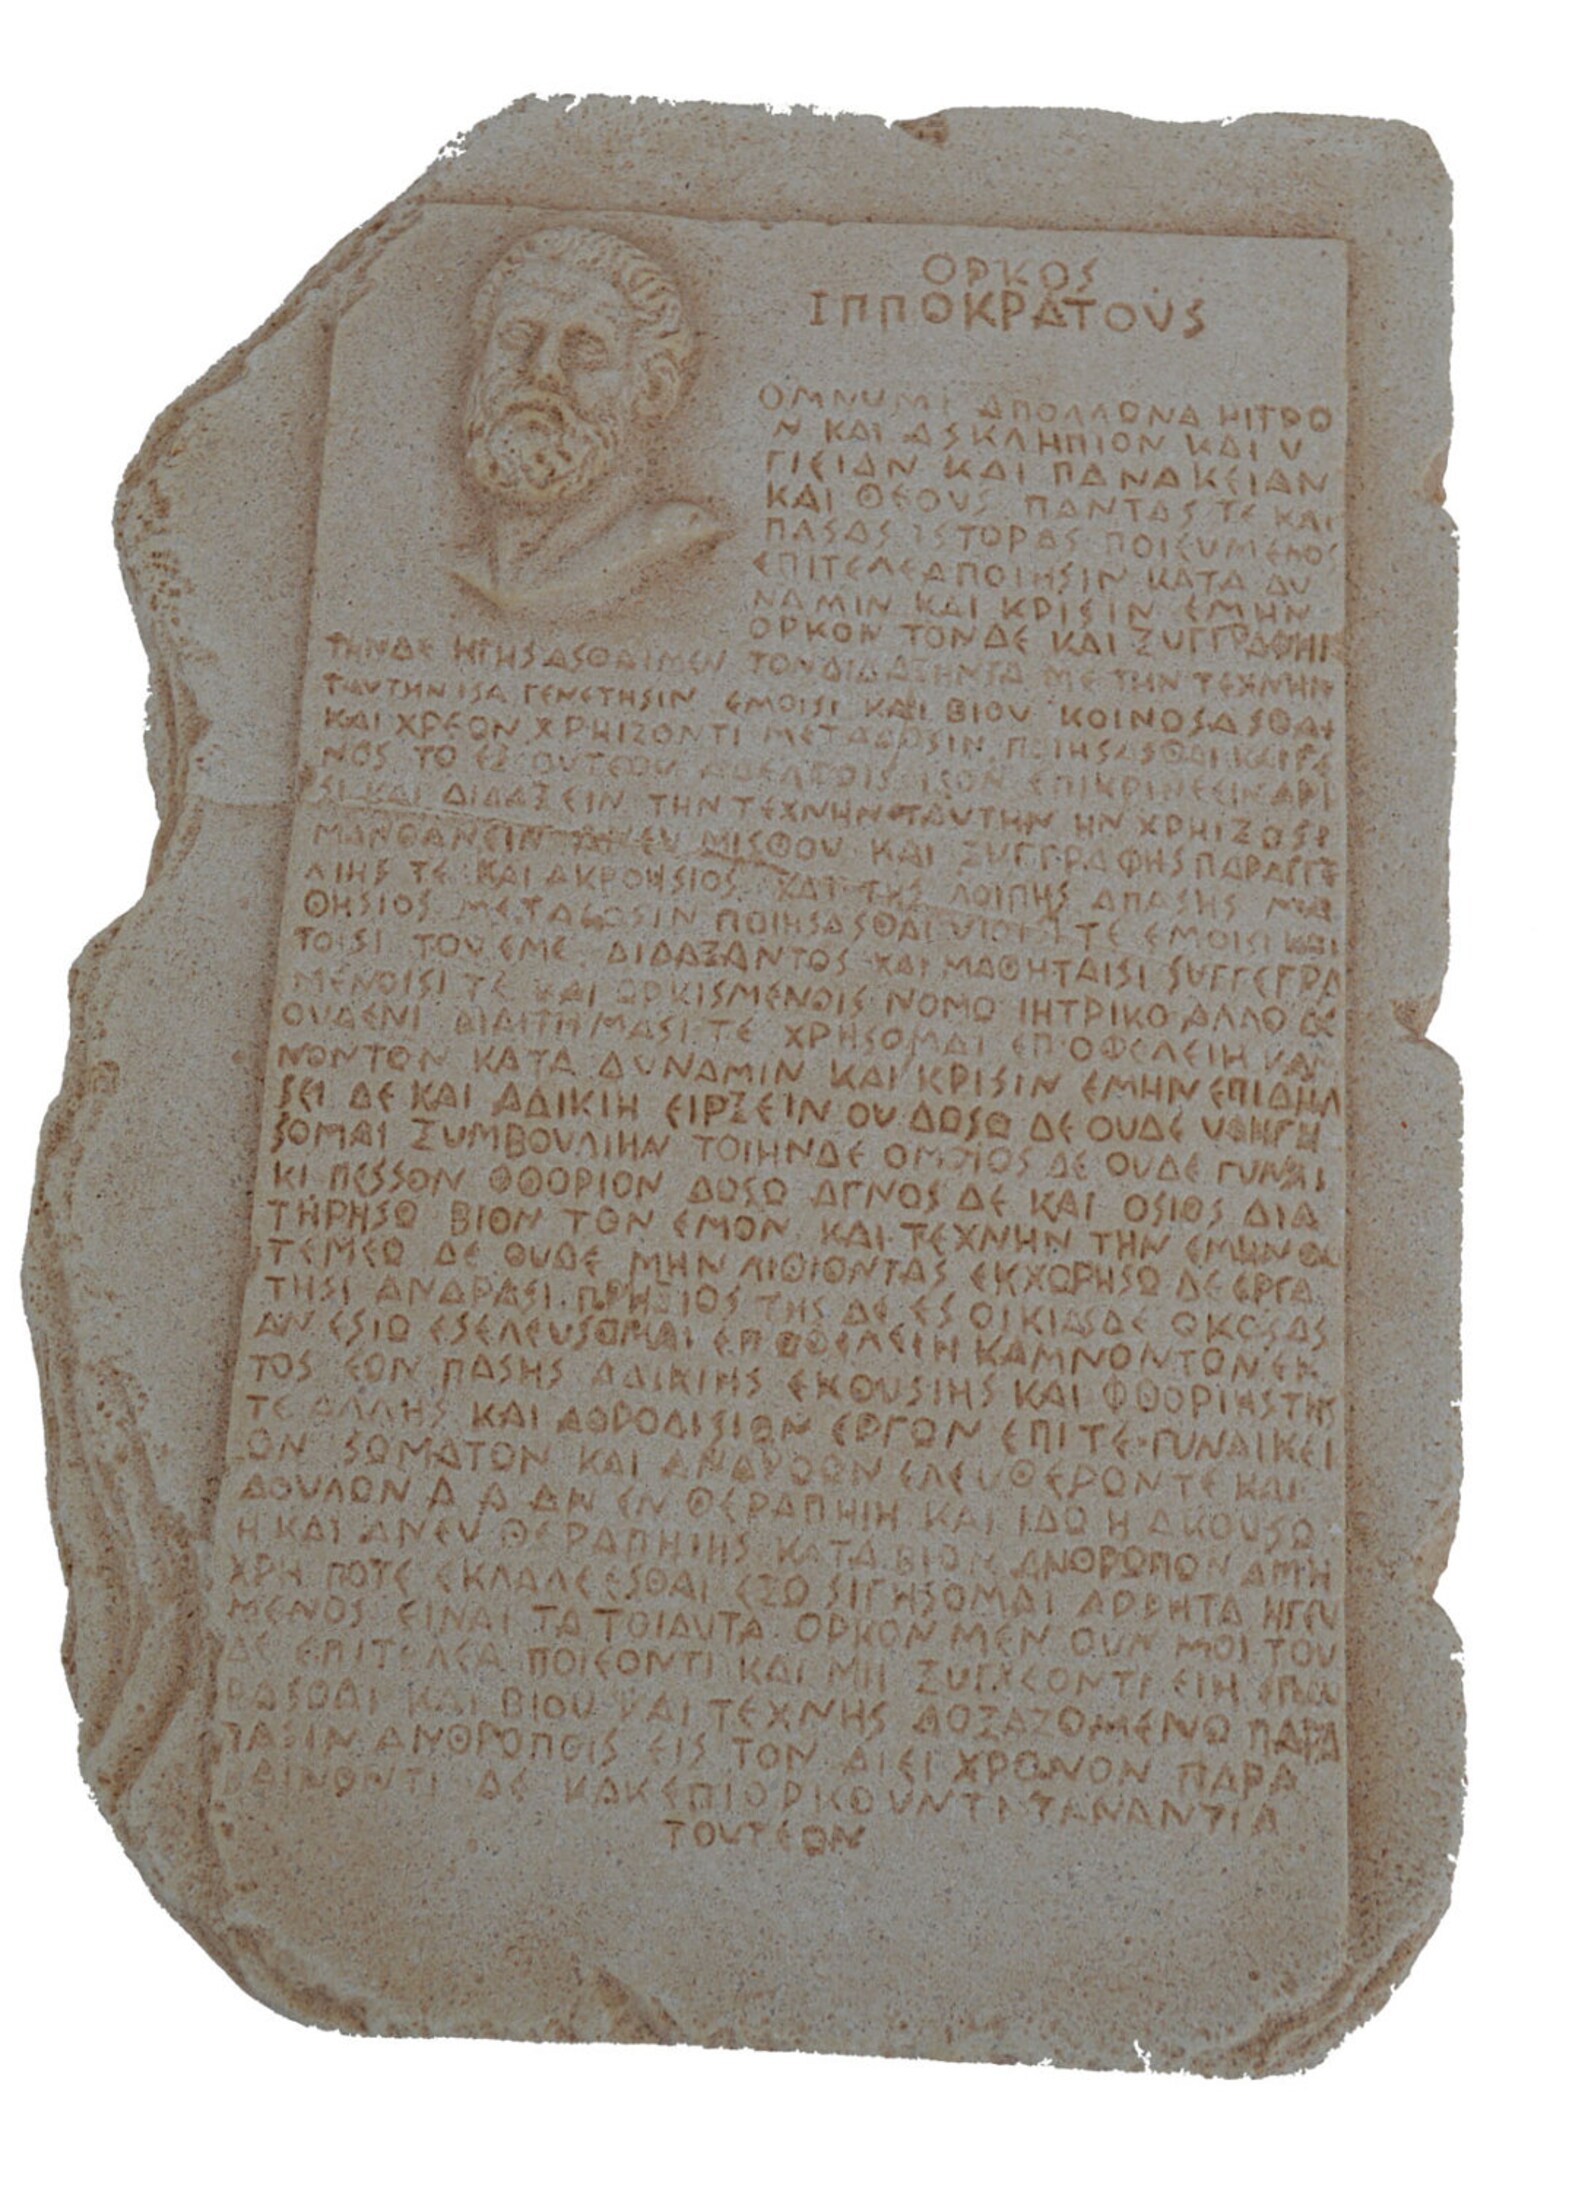 ΟΡΚΟΣ
ΙΠΠΟΚΡΑΤΟΥΣ
ΟΜΝΥΜΙ ΑΠΟΛΛΩΝΑ ΗΙΤΡΟ
Ν ΚΑΙ ΑΣΚΛΗΠΙΟΝ ΚΑΙ Υ
ΓΙΕΙΑΝ ΚΑΙ ΠΑΝΑΚΕΙΑΝ
ΚΑΙ ΘΕΟΥΣ ΠΑΝΤΑΣ ΤΕ ΚΑΙ
ΠΑΣΑΣ ΙΣΤΟΡΑΣ ΠΟΙΕΥΜΕΝΟΣ
ΕΠΙΤΕΛΕΑ ΠΟΙΗΣΙΝ ΚΑΤΑ ΔΥ
ΝΑΜΙΝ ΚΑΙ ΚΡΙΣΙΝ ΕΜΗΝ
ΟΡΚΟΝ ΤΟΝΔΕ ΚΑΙ ΞΥΓΓΡΑΦΗΝ
ΤΗΝΔΕ ΗΓΗΣΑΣΘΑΙ ΜΕΝ ΤΟΝ ΔΙΔΑΞΗΝΤΑ ΜΕ ΤΗΝ ΤΕΧΝΗΝ
ΤΑΥΤΗΝ ΙΣΑ ΓΕΝΕΤΗΣΙΝ ΕΜΟΙΣΙ ΚΑΙ ΒΙΟΥ ΚΟΙΝΟΣΑΣΘΑΙ
ΚΑΙ ΧΡΕΩΝ ΧΡΗΙΖΟΝΤΙ ΜΕΤΑΔΟΣΙΝ ΠΟΙΗΣΑΣΘΑΙ ΚΑΙ ΓΕ
ΝΟΣ ΤΟ ΕΞ ΟΥΤΕΩΥ ΑΔΕΛΦΟΙΣ ΙΣΟΝ ΕΠΙΚΡΙΝΕΕΙΝ ΑΡΙ
ΣΙ ΚΑΙ ΔΙΔΑΞΕΙΝ ΤΗΝ ΤΕΧΝΗΝ ΤΑΥΤΗΝ ΗΝ ΧΡΗΙΖΩΣΙ
ΜΑΝΘΑΝΕΙΝ ΑΝΕΥ ΜΙΣΘΟΥ ΚΑΙ ΞΥΓΓΡΑΦΗΣ ΠΑΡΑΓΓΕ
ΛΙΗΣ ΤΕ ΚΑΙ ΑΚΡΟΗΣΙΟΣ ΚΑΙ ΤΗΣ ΛΟΙΠΗΣ ΑΠΑΣΗΣ ΜΑ
ΘΗΣΙΟΣ ΜΕΤΑΔΟΣΙΝ ΠΟΙΗΣΑΣΘΑΙ ΥΙΟΙΣΙ ΤΕ ΕΜΟΙΣΙ ΚΑΙ
ΤΟΙΣΙ ΤΟΥ ΕΜΕ ΔΙΔΑΞΑΝΤΟΣ ΚΑΙ ΜΑΘΗΤΑΙΣΙ ΣΥΓΓΕΓΡΑ
ΜΕΝΟΙΣΙ ΤΕ ΚΑΙ ΩΡΚΙΣΜΕΝΟΙΣ ΝΟΜΩ ΙΗΤΡΙΚΟ ΑΛΛΟ ΔΕ
ΟΥΔΕΝΙ ΔΙΑΙΤΗΜΑΣΙ ΤΕ ΧΡΗΣΟΜΑΙ ΕΠ ΟΦΕΛΕΙΗ ΚΑΜ
ΝΟΝΤΩΝ ΚΑΤΑ ΔΥΝΑΜΙΝ ΚΑΙ ΚΡΙΣΙΝ ΕΜΗΝ ΕΠΙ ΔΗΛ
ΣΕΙ ΔΕ ΚΑΙ ΑΔΙΚΙΗ ΕΙΡΞΕΙΝ ΟΥ ΔΩΣΩ ΔΕ ΟΥΔΕ ΥΦΗΓΗ
ΣΟΜΑΙ ΞΥΜΒΟΥΛΙΗΝ ΤΟΙΗΝΔΕ ΟΜΟΙΟΣ ΔΕ ΟΥΔΕ ΓΥΝΑΙ
ΚΙ ΠΕΣΣΟΝ ΦΘΟΡΙΟΝ ΔΩΣΩ ΑΓΝΟΣ ΔΕ ΚΑΙ ΟΣΙΟΣ ΔΙΑ
ΤΗΡΗΣΩ ΒΙΟΝ ΤΟΝ ΕΜΟΝ ΚΑΙ ΤΕΧΝΗΝ ΤΗΝ ΕΜΗΝ ΟΥ
ΤΕΜΕΩ ΔΕ ΟΥΔΕ ΜΗΝ ΛΙΘΙΟΝΤΑΣ ΕΚΧΩΡΗΣΩ ΔΕ ΕΡΓΑ
ΤΗΣΙ ΑΝΔΡΑΣΙ ΠΡΗΞΙΟΣ ΤΗΣ ΔΕ ΕΣ ΟΙΚΙΑΣ ΔΕ ΟΚΟΣΑΣ
ΑΝ ΕΣΙΩ ΕΣΕΛΕΥΣΟΜΑΙ ΕΠ ΩΦΕΛΕΙΗ ΚΑΜΝΟΝΤΩΝ ΕΚ
ΤΟΣ ΕΩΝ ΠΑΣΗΣ ΑΔΙΚΙΗΣ ΕΚΟΥΣΙΗΣ ΚΑΙ ΦΘΟΡΙΗΣ ΤΗΣ
ΤΕ ΑΛΛΗΣ ΚΑΙ ΑΦΡΟΔΙΣΙΩΝ ΕΡΓΩΝ ΕΠΙ ΤΕ ΓΥΝΑΙΚΕΙ
ΩΝ ΣΩΜΑΤΩΝ ΚΑΙ ΑΝΔΡΩΩΝ ΕΛΕΥΘΕΡΩΝ ΤΕ ΚΑΙ
ΔΟΥΛΩΝ Α Δ ΑΝ ΕΝ ΘΕΡΑΠΗΙΗ ΚΑΙ ΙΔΩ Η ΑΚΟΥΣΩ
Η ΚΑΙ ΑΝΕΥ ΘΕΡΑΠΗΙΗΣ ΚΑΤΑ ΒΙΟΝ ΑΝΘΡΩΠΩΝ ΑΜΗ
ΧΡΗ ΠΟΤΕ ΕΚΛΑΛΕΕΣΘΑΙ ΕΞΩ ΣΙΓΗΣΟΜΑΙ ΑΡΡΗΤΑ ΗΓΕΥ
ΜΕΝΟΣ ΕΙΝΑΙ ΤΑ ΤΟΙΑΥΤΑ ΟΡΚΟΝ ΜΕΝ ΟΥΝ ΜΟΙ ΤΟΥ
ΔΕ ΕΠΙΤΕΛΕΑ ΠΟΙΕΟΝΤΙ ΚΑΙ ΜΗ ΞΥΓΧΕΟΝΤΙ ΕΙΗ ΕΠΑΥ
ΡΑΣΘΑΙ ΚΑΙ ΒΙΟΥ ΚΑΙ ΤΕΧΝΗΣ ΔΟΞΑΖΟΜΕΝΩ ΠΑΡΑ
ΠΑΣΙΝ ΑΝΘΡΩΠΟΙΣ ΕΙΣ ΤΟΝ ΑΙΕΙ ΧΡΟΝΟΝ ΠΑΡΑ
ΒΑΙΝΟΝΤΙ ΔΕ ΚΑΚ ΕΠΙΟΡΚΟΥΝΤΙ ΤΑΝΑΝΤΙΑ
ΤΟΥΤΕΩΝ